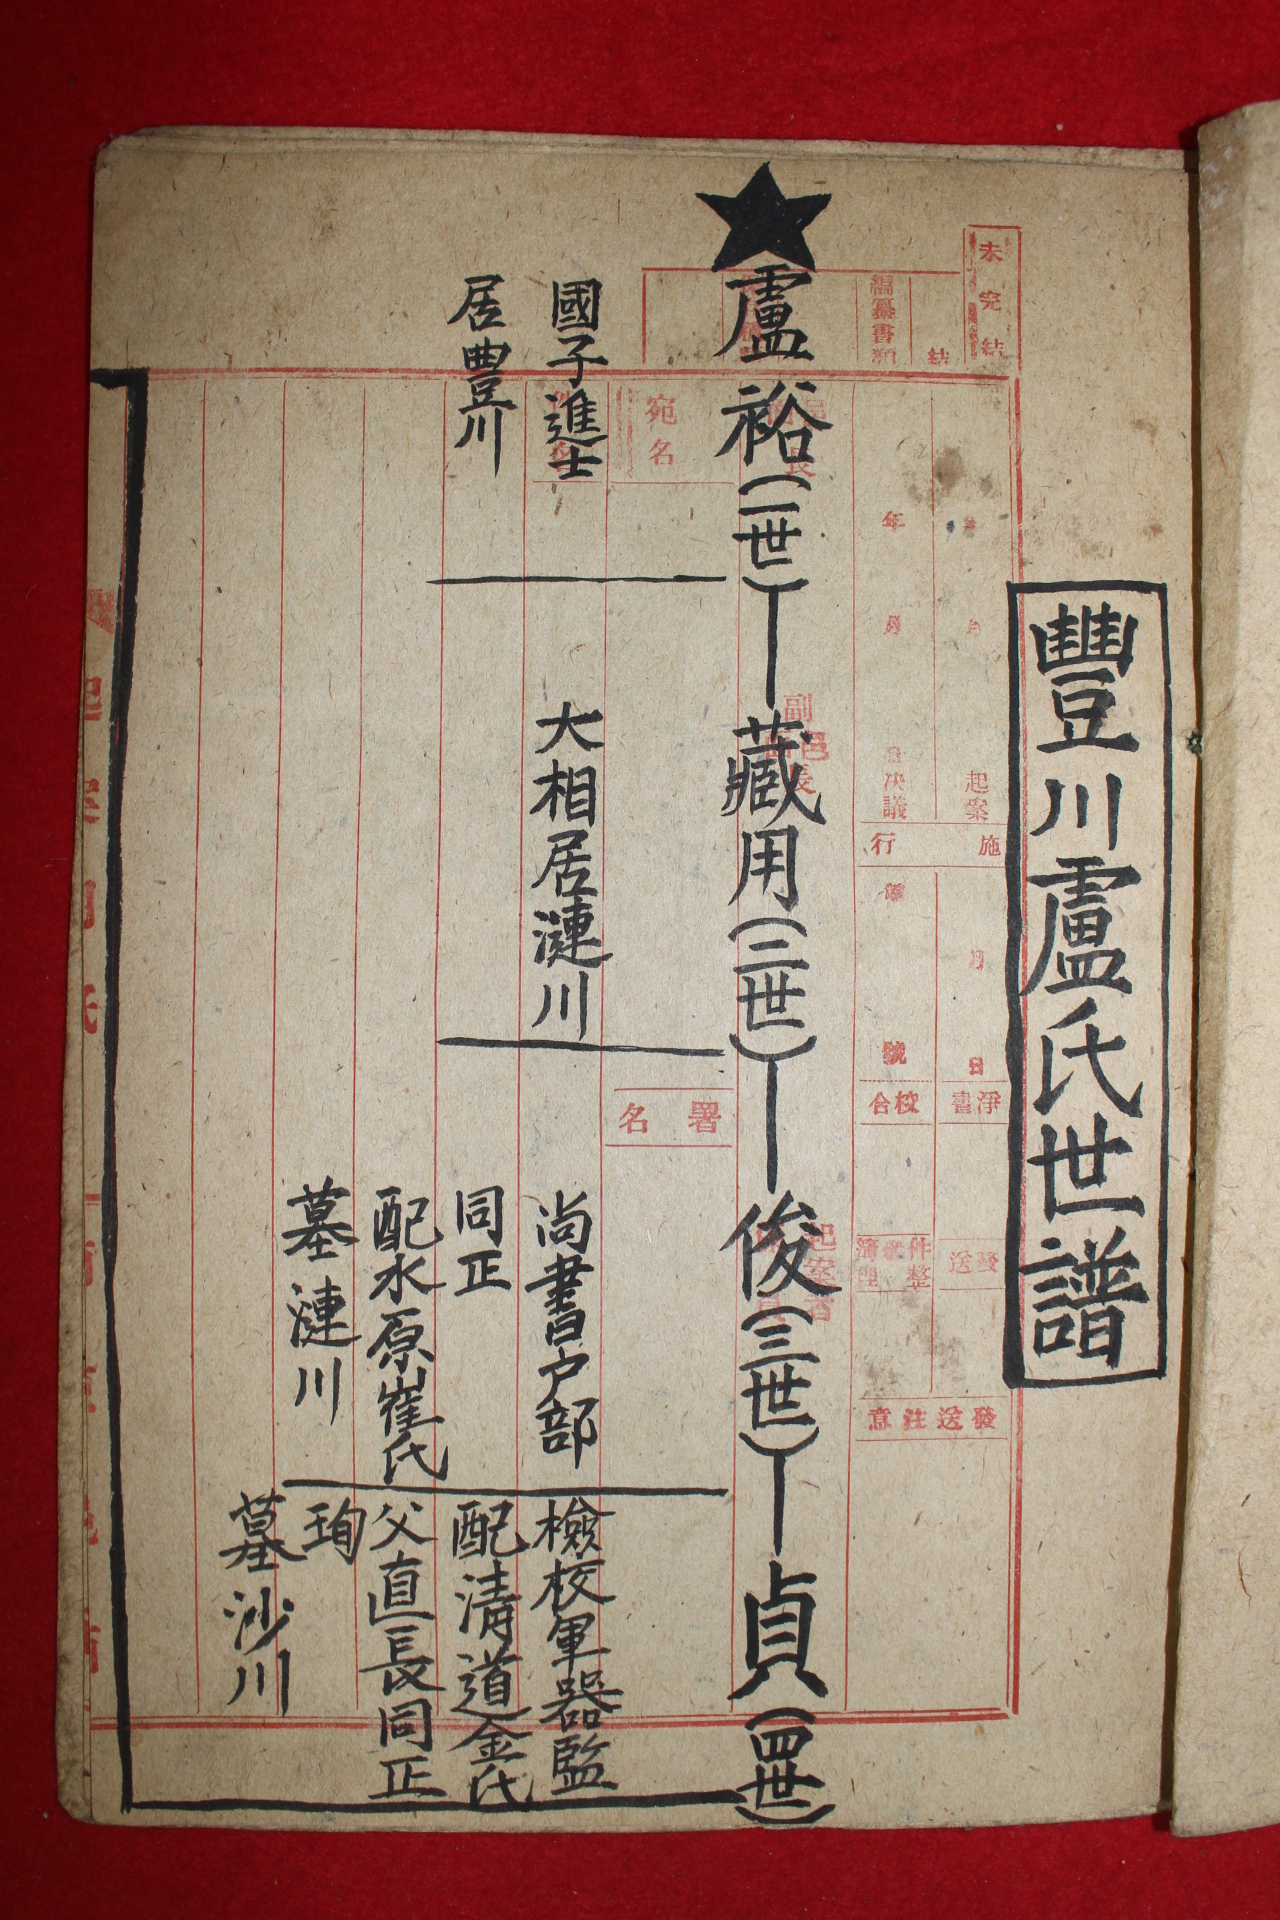 豐川盧氏世譜
★盧裕(一世)—藏用(二世)—俊(三世)—貞(四世)
國子進士
居豊川
大相居漣川
尚書户部
同正
配水原崔氏
墓漣川
檢校軍器監
配清道金氏
父直長同正
珣
墓沙川
未完結
編纂書類
結
宛名
年
月
決議
起案
施
行
月
號
日
校合
淨書
署名
副邑長
邑長
起案者
件整
發送
發送注意